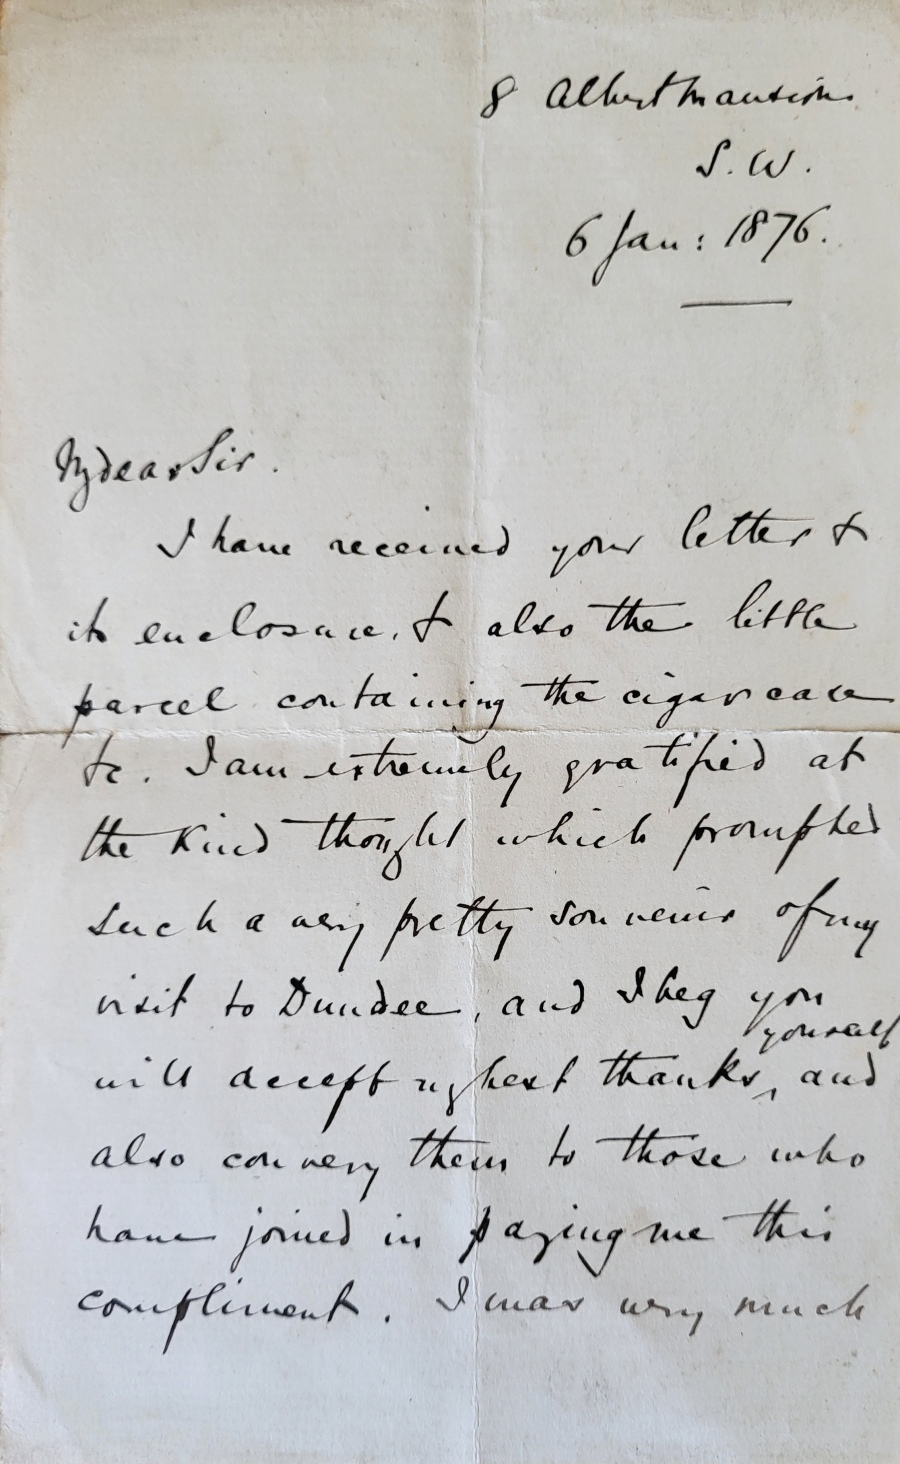 8 Albert Mansions
S. W.
6 Jan: 1876.
My dear Sir.
I have received your letter &
its enclosure, & also the little
parcel containing the cigar case
&c. I am extremely gratified at
the kind thought which prompted
such a very pretty souvenir of my
visit to Dundee, and I beg you
yourself
will accept my best thanks, and
also convey them to those who
have joined in paying me this
compliment. I was very much